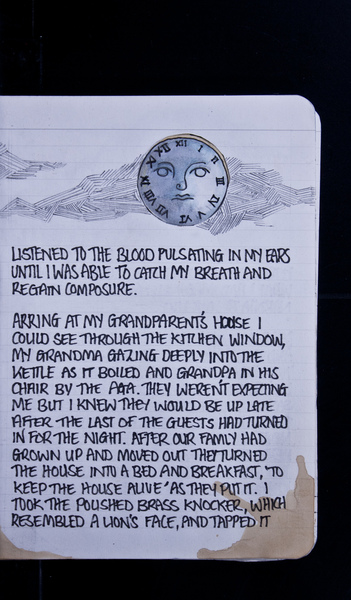 XII I II III IV V VI VII VIII IX X XI
LISTENED TO THE BLOOD PULSATING IN MY EARS
UNTIL I WAS ABLE TO CATCH MY BREATH AND
REGAIN COMPOSURE.
ARRING AT MY GRANDPARENT'S HOUSE I
COULD SEE THROUGH THE KITCHEN WINDOW,
MY GRANDMA GAZING DEEPLY INTO THE
KETTLE AS IT BOILED AND GRANDPA IN HIS
CHAIR BY THE AGA. THEY WEREN'T EXPECTING
ME BUT I KNEW THEY WOULD BE UP LATE
AFTER THE LAST OF THE GUESTS HAD TURNED
IN FOR THE NIGHT. AFTER OUR FAMILY HAD
GROWN UP AND MOVED OUT THEY TURNED
THE HOUSE INTO A BED AND BREAKFAST, 'TO
KEEP THE HOUSE ALIVE' AS THEY PUT IT. I
TOOK THE POLISHED BRASS KNOCKER, WHICH
RESEMBLED A LION'S FACE, AND TAPPED IT